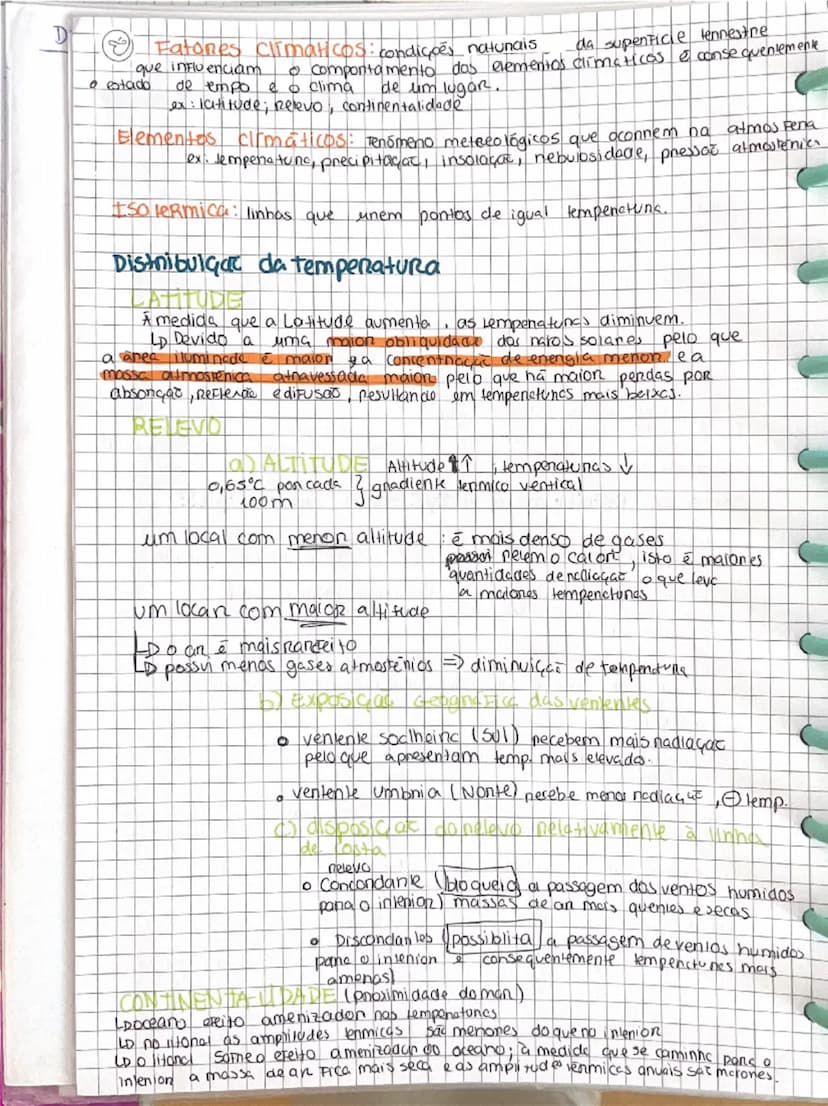 D
Fatores Climáticos: condições naturais da superfície terrestre
que influenciam o comportamento dos elementos climáticos e consequentemente
o estado de tempo e o clima de um lugar.
ex: latitude; relevo, continentalidade
Elementos climáticos: Fenómeno meteeológicos que ocorrem na atmosfera
ex: temperatura, precipitação, insolação, nebulosidade, pressão atmosférica
Isotérmica: linhas que unem pontos de igual temperatura.
Distribuição da temperatura
LATITUDE
À medida que a Latitude aumenta, as temperaturas diminuem.
↳ Devido a uma maior obliquidade dos raios solares pelo que
a área iluminada é maior e a concentração de energia menor e a
massa atmosférica atravessada maior pelo que há maior perdas por
absorção, reflexão e difusão, resultando em temperaturas mais baixas.
RELEVO
a) ALTITUDE Altitude ↑↑, temperaturas ↓
0,65°C por cada } gradiente térmico vertical
100m
um local com menor altitude: é mais denso de gases
retem o calor, isto é maiores
quantidades de radiação o que leva
a maiores temperaturas
um locar com maior altitude
↳ o ar é mais rarefeito
↳ possui menos gases atmosférios => diminuição de temperatura
b) Exposição Geográfica das vertentes
• vertente soalheira (Sul) recebem mais radiação
pelo que apresentam temp. mais elevadas.
• vertente umbria (Norte) recebe menos radiação, ⊖ temp.
c) disposição do relevo relativamente à linha
de costa
relevo
• Concordante (bloqueia a passagem dos ventos humidos
para o interior) massas de ar mais quentes e secas
• Discordantes (possiblita a passagem de ventos humidos
para o interior e consequentemente temperatures mais
amenas)
CONTINENTALIDADE (proximidade do mar)
↳ oceano efeito amenizador nas temperaturas
↳ no litoral as amplitudes térmicas são menores do que no interior
↳ o litoral sofre o efeito amenizador do oceano; à medida que se caminha para o
interior a massa de ar fica mais seca e as amplitudes térmicas anuais são maiores.